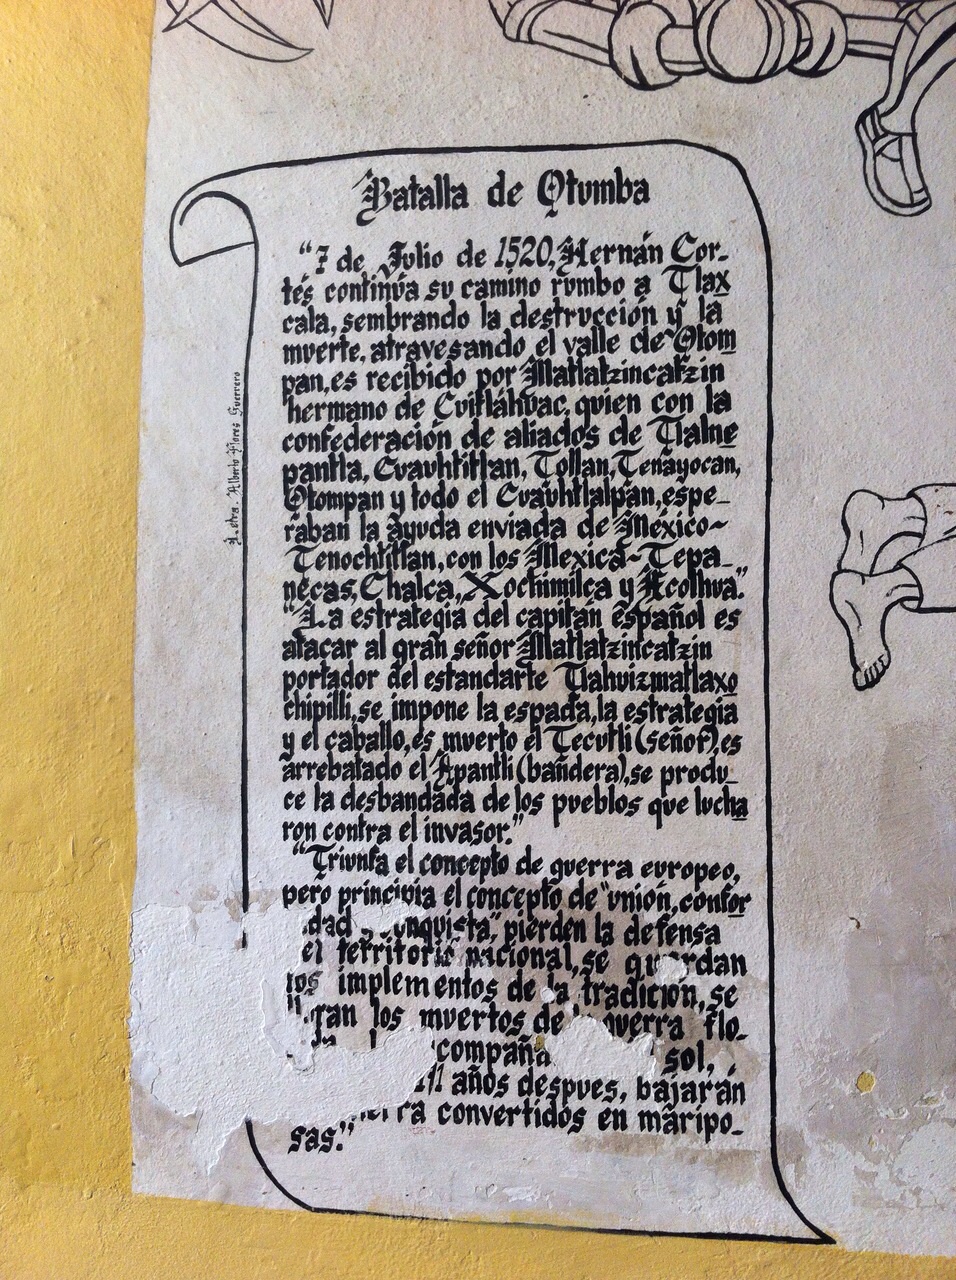 Batalla de Otumba
"7 de Julio de 1520, Hernán Cor-
tés continúa su camino rumbo a Tlax
cala, sembrando la destrucción y la
muerte, atravesando el valle de Otom
pan, es recibido por Matlatzincatzin
hermano de Cuitláhuac, quien con la
confederación de aliados de Tlalne
pantla, Cuauhtitlan, Tollan, Tenayocan,
Otompan y todo el Cuauhtlalpan, espe-
raban la ayuda enviada de México-
Tenochtitlan, con los Mexica-Tepa-
necas, Chalca, Xochimilca y Acolhua."
"La estrategia del capitan español es
atacar al gran señor Matlatzincatzin
portador del estandarte Tlahuizmatlaxo
chipilli, se impone la espada, la estrategia
y el caballo, es muerto el Tecutli (señor), es
arrebatado el Apantli (bandera), se produ-
ce la desbandada de los pueblos que lucha
ron contra el invasor."
"Triunfa el concepto de guerra europeo,
pero principia el concepto de "unión, confor
dad conquista", pierden la defensa
el territorio nacional, se guardan
los implementos de la tradicion, se
los muertos de la guerra flo-
compaña sol,
años despues, bajaran
convertidos en maripo-
sas."
Letra. Alberto Flores Guerrero